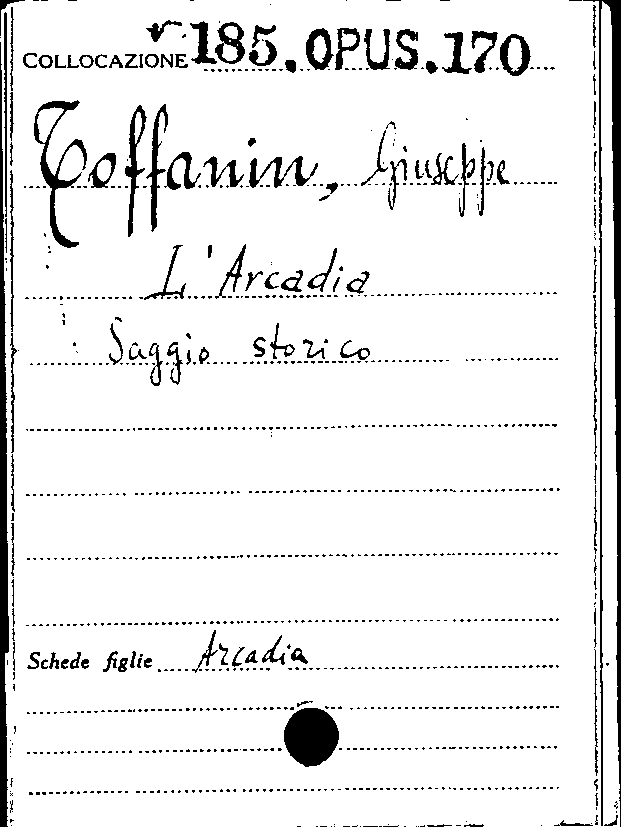 COLLOCAZIONE 185.OPUS.170
Toffanin, Giuseppe
L'Arcadia
Saggio storico
Schede figlie Arcadia